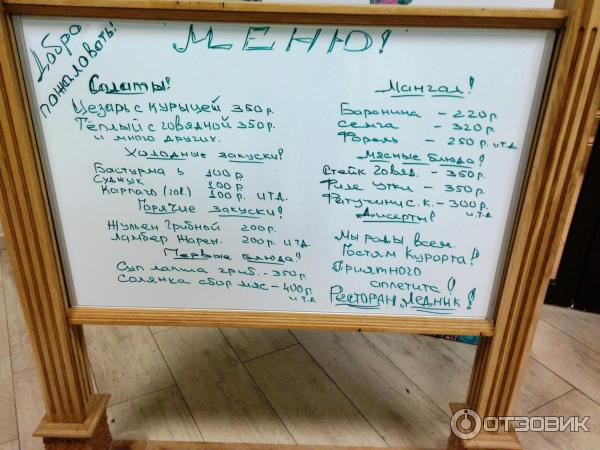 Добро
пожаловать!
МЕНЮ!
Салаты!
Цезарь с курицей 350р.
Тёплый с говядной 350р.
и много других.
Холодные закуски!
Бастурма ь 100р
Суджук 100р
Карпачо (гов.) 100р. и т.д.
Горячие закуски!
Жульен Грибной 200р.
Ламбер Жарен. 200р. и т.д.
Первые блюда!
Суп лапша гриб. - 350р.
Солянка сбор мяс - 400р.
и т.д.
Мангал!
Баранина - 220р.
Семга - 320р.
Форель - 250р. и т.д.
Мясные блюда!
Стейк Говяд. - 350р.
Филе утки - 350р.
Фетучини с. к. - 300р.
и т.д.
Дисерты!
Мы рады всем.
Гостям курорта!
Приятного
аппетита!
Ресторан "Медник"!
ОТЗОВИК